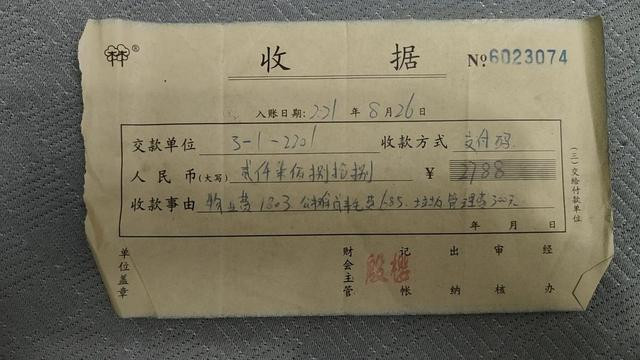 ®
收 据
№6023074
入账日期:2021 年 8 月 26 日
交款单位 3-1-2201 收款方式 支付码
人民币(大写) 贰仟柒佰捌拾捌 ¥ 2788
收款事由 物业费1803 公摊 费685 垃圾管理费300元
年 月 日
(三)交给付款单位
单位盖章
财会主管
记帐
出纳
审核
经办
殷樱